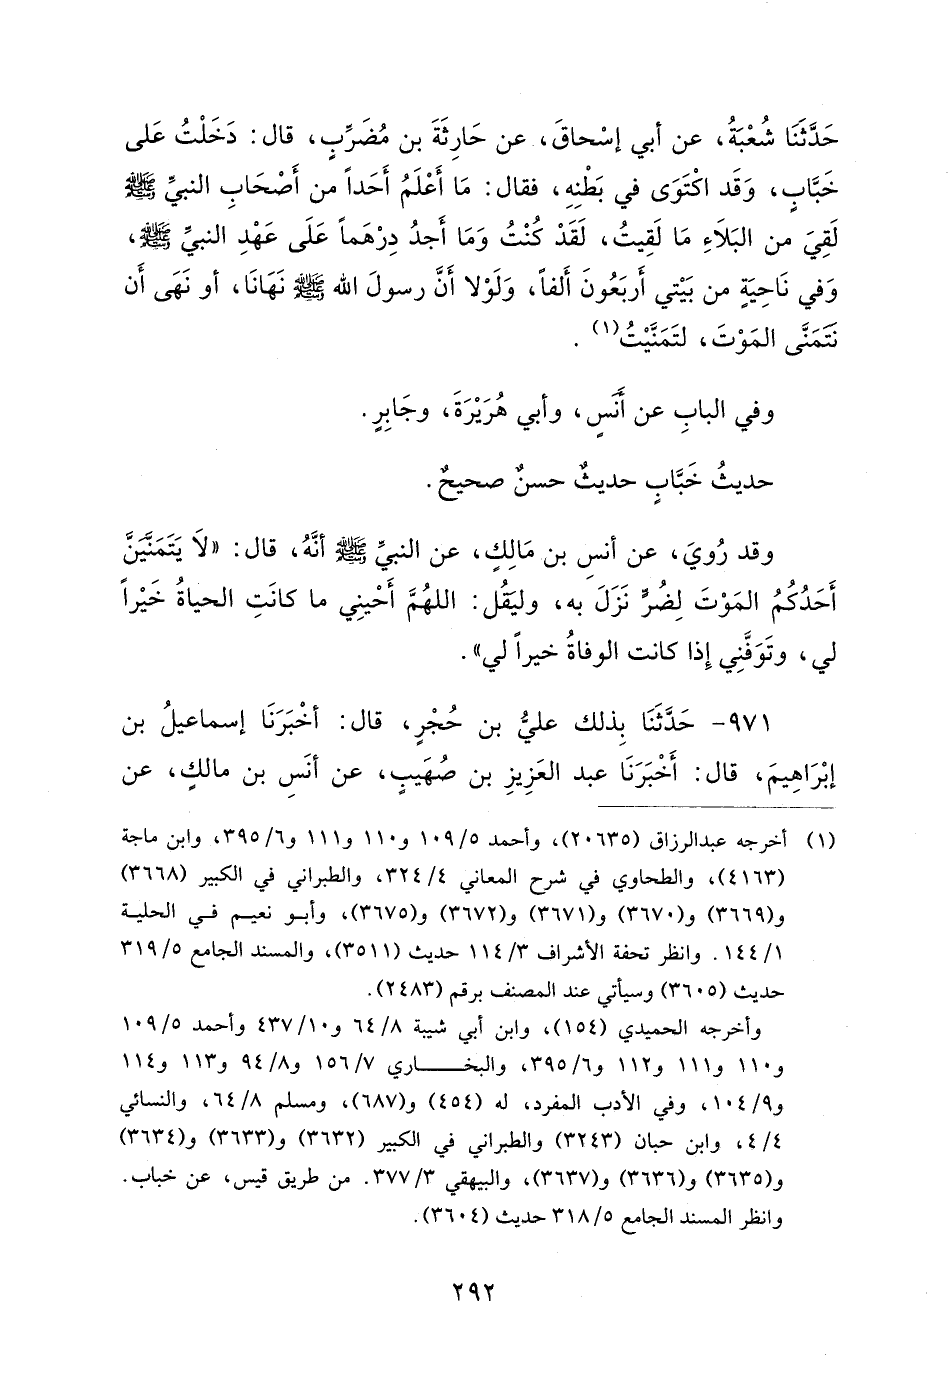 حَدَّثَنَا شُعْبَةُ، عن أبي إسْحاقَ، عن حَارِثَةَ بن مُضَرِّبٍ، قال: دَخَلْتُ عَلى
خَبَّابٍ، وَقَد اكْتَوَى في بَطْنِهِ، فقال: مَا أَعْلَمُ أَحَداً من أَصْحَابِ النبيِّ ﷺ
لَقِيَ من البَلَاءِ مَا لَقِيتُ، لَقَدْ كُنْتُ وَمَا أجدُ دِرْهَماً عَلَى عَهْدِ النبيِّ ﷺ،
وَفي نَاحِيَةٍ من بَيْتي أَرْبَعُونَ أَلفاً، وَلَوْلا أَنَّ رسولَ الله ﷺ نَهَانَا، أو نَهَى أَن
نَتَمَنَّى المَوْتَ، لتَمَنَّيْتُ(١) .
وفي البابِ عن أَنَسٍ، وأبي هُرَيْرَةَ، وجَابِرٍ.
حديثُ خَبَّابٍ حديثٌ حسنٌ صحيحٌ.
وقد رُويَ، عن أنسِ بن مَالِكٍ، عن النبيِّ ﷺ أنَّهُ، قال: «لَا يَتَمَنَّيَنَّ
أَحَدُكُمُ المَوْتَ لِضُرٍّ نَزَلَ به، وليَقُل: اللهُمَّ أَحْيِنِي ما كانَتِ الحياةُ خَيْراً
لي، وتَوَفَّنِي إِذا كانت الوفاةُ خيراً لي».
٩٧١- حَدَّثَنَا بِذلك عليُّ بن حُجْرٍ، قال: أخْبَرَنَا إسماعيلُ بن
إبْرَاهِيمَ، قال: أَخْبَرَنَا عبد العَزِيزِ بن صُهَيبٍ، عن أنَسِ بن مالكٍ، عن
(١) أخرجه عبدالرزاق (٢٠٦٣٥)، وأحمد ١٠٩/٥ و١١٠ و١١١ و٣٩٥/٦، وابن ماجة
(٤١٦٣)، والطحاوي في شرح المعاني ٣٢٤/٤، والطبراني في الكبير (٣٦٦٨)
و(٣٦٦٩) و(٣٦٧٠) و(٣٦٧١) و(٣٦٧٢) و(٣٦٧٥)، وأبو نعيم في الحلية
١٤٤/١. وانظر تحفة الأشراف ١١٤/٣ حديث (٣٥١١)، والمسند الجامع ٣١٩/٥
حديث (٣٦٠٥) وسيأتي عند المصنف برقم (٢٤٨٣).
وأخرجه الحميدي (١٥٤)، وابن أبي شيبة ٦٤/٨ و٤٣٧/١٠ وأحمد ١٠٩/٥
و١١٠ و١١١ و١١٢ و٣٩٥/٦، والبخاري ١٥٦/٧ و٩٤/٨ و١١٣ و١١٤
و١٠٤/٩، وفي الأدب المفرد، له (٤٥٤) و(٦٨٧)، ومسلم ٦٤/٨، والنسائي
٤/٤، وابن حبان (٣٢٤٣) والطبراني في الكبير (٣٦٣٢) و(٣٦٣٣) و(٣٦٣٤)
و(٣٦٣٥) و(٣٦٣٦) و(٣٦٣٧)، والبيهقي ٣٧٧/٣. من طريق قيس، عن خباب.
وانظر المسند الجامع ٣١٨/٥ حديث (٣٦٠٤).
٢٩٢